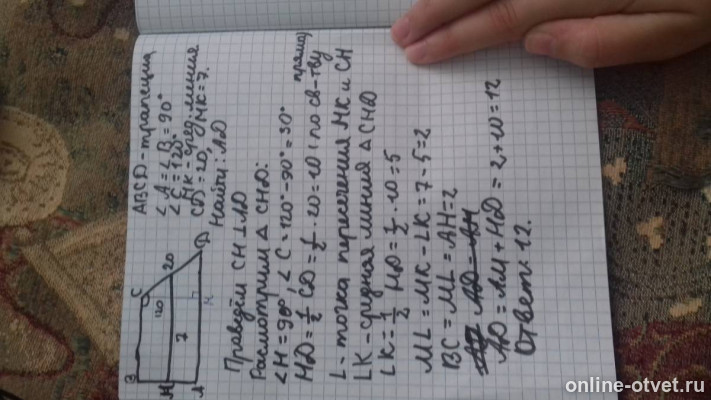 ABCD - трапеция
∠A = ∠B = 90°
∠C = 120°
MK - сред. линия
CD = 20, MK = 7.
Найти: AD
B
C
120
20
M
7
A
H
D
Проведём CH ⊥ AD
Расмотрим △ CHD:
∠H = 90°, ∠C = 120° - 90° = 30°
HD = 1/2 CD = 1/2 · 20 = 10, по св-тву прямо
L - точка пересечения MK и CH
LK - средняя линия △ CHD
LK = 1/2 HD = 1/2 · 10 = 5
ML = MK - LK = 7 - 5 = 2
BC = ML = AH = 2
AD = AH + HD = 2 + 10 = 12
Ответ: 12.
online-otvet.ru